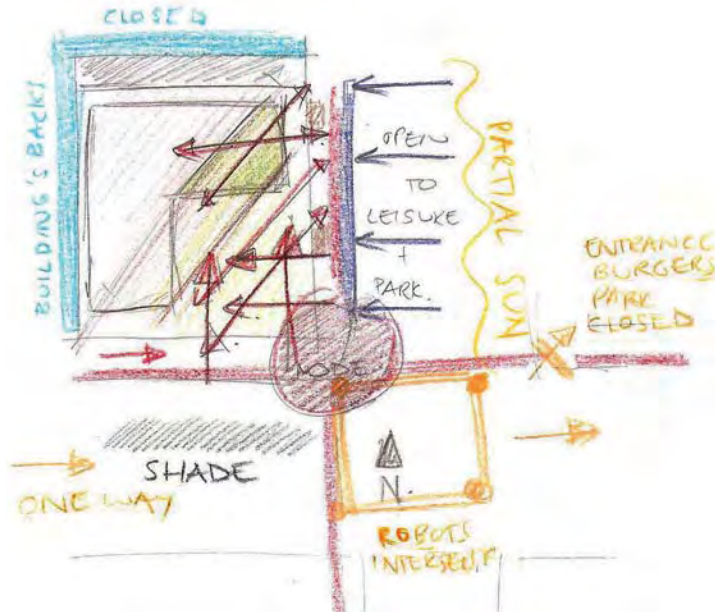 CLOSED
BUILDING'S BACKS
OPEN
TO
LEISURE
+
PARK.
PARTIAL SUN
ENTRANCE
BURGERS
PARK
CLOSED
NODE
SHADE
N.
ONE WAY
ROBOTS